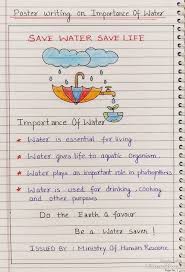 Poster writing on Importance Of Water
SAVE WATER SAVE LIFE
Importance Of Water
★ Water is essential for living
★ Water gives life to aquatic organism.
★ Water plays an important role in photosynthesis
★ Water is used for drinking, cooking
and other purposes
Do the Earth a favour
Be a Water Saver!
ISSUED BY : Ministry Of Human Resource